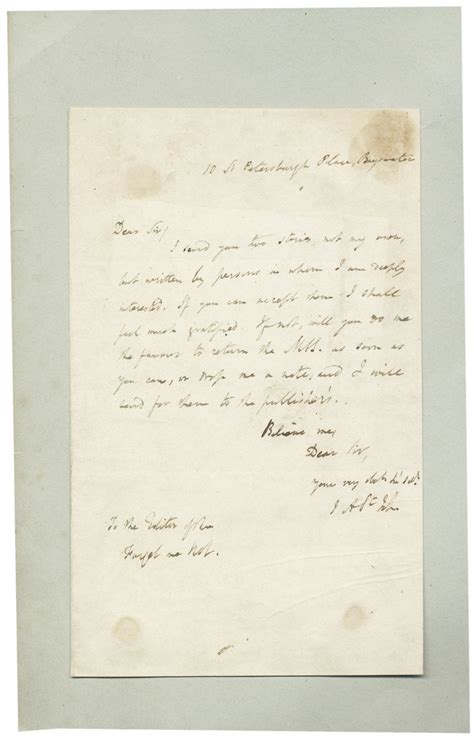 10 St Petersburgh Place, Bayswater
Dear Sir,
I send you two stories, not my own,
but written by persons in whom I am deeply
interested. If you can accept them I shall
feel much gratified. If not, will you do me
the favour to return the MSS. as soon as
you can, or drop me a note, and I will
send for them to the publisher's.
Believe me,
Dear Sir,
Your very
J A St
To the Editor of the
Forget me Not.